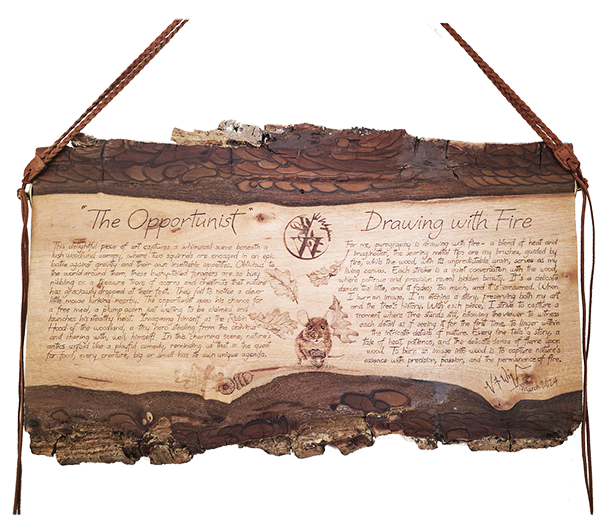 "The Opportunist"
This delightful piece of art captures a whimsical scene beneath a
lush woodland canopy, where two squirrels are engaged in an epic
battle against gravity and their own insatiable appetites. Oblivious to
the world around them, these bushy-tailed foragers are so busy
nibbling on a treasure trove of acorns and chestnuts that nature
has graciously dropped at their feet. They fail to notice a clever
little mouse lurking nearby. The opportunist sees his chance for
a free meal, a plump acorn just waiting to be claimed and
launches his stealthy heist. Envisioning himself as the Robin
Hood of the woodland, a tiny hero stealing from the oblivious
and sharing with, well, himself! In this charming scene, nature's
antics unfold like a playful comedy, reminding us that in the quest
for food, every creature, big or small has its own unique agenda.
Drawing with Fire
For me, pyrography is drawing with fire - a blend of heat and
imagination, the searing metal tips are my brushes, guided by
fire, while the wood, with its unpredictable grain, serves as my
living canvas. Each stroke is a quiet conversation with the wood,
where patience and precision reveal hidden beauty. It's a delicate
dance: too little, and it fades; too much, and it's consumed. When
I burn an image, I'm etching a story, preserving both my art
and the tree's history. With each piece, I strive to capture a
moment where time stands still, allowing the viewer to witness
each detail as if seeing it for the first time. To linger within
the intricate details of nature. Every line tells a story, a
tale of heat, patience, and the delicate dance of flame upon
wood. To burn an image into wood is to capture nature's
essence with precision, passion, and the permanence of fire.
2024